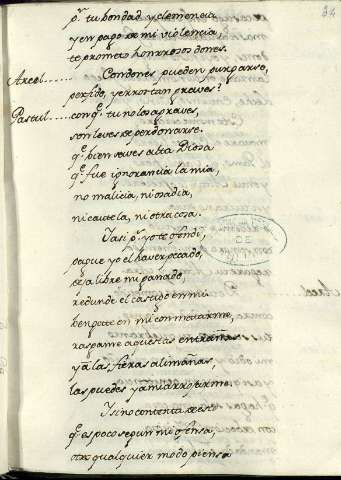 34
pr. tu bondad y clemencia
y en pago de mi violencia,
te prometo honrrosos dones.
Arcel...... Con dones pueden purgarse,
perfido, yerros tan graves?
Pastul.... con q. tu no los agraves,
son leves de perdonarse.
q. bien se ves alta Diosa
q. fue ignorancia la mia,
no malicia, ni osadia,
ni cautela, ni otra cosa.
Y asi pr. yo te ofendi,
pague yo el haver pecado,
seja libre mi ganado,
redunde el castigo en mi
vengate en mi con matarme,
rasgame aquestas entrañas
y a las fieras alimañas,
las puedes ya mi arrojarme.
Y si no contenta de esto
q. es poco segun mi ofensa,
otro qualquier modo piensa
DE